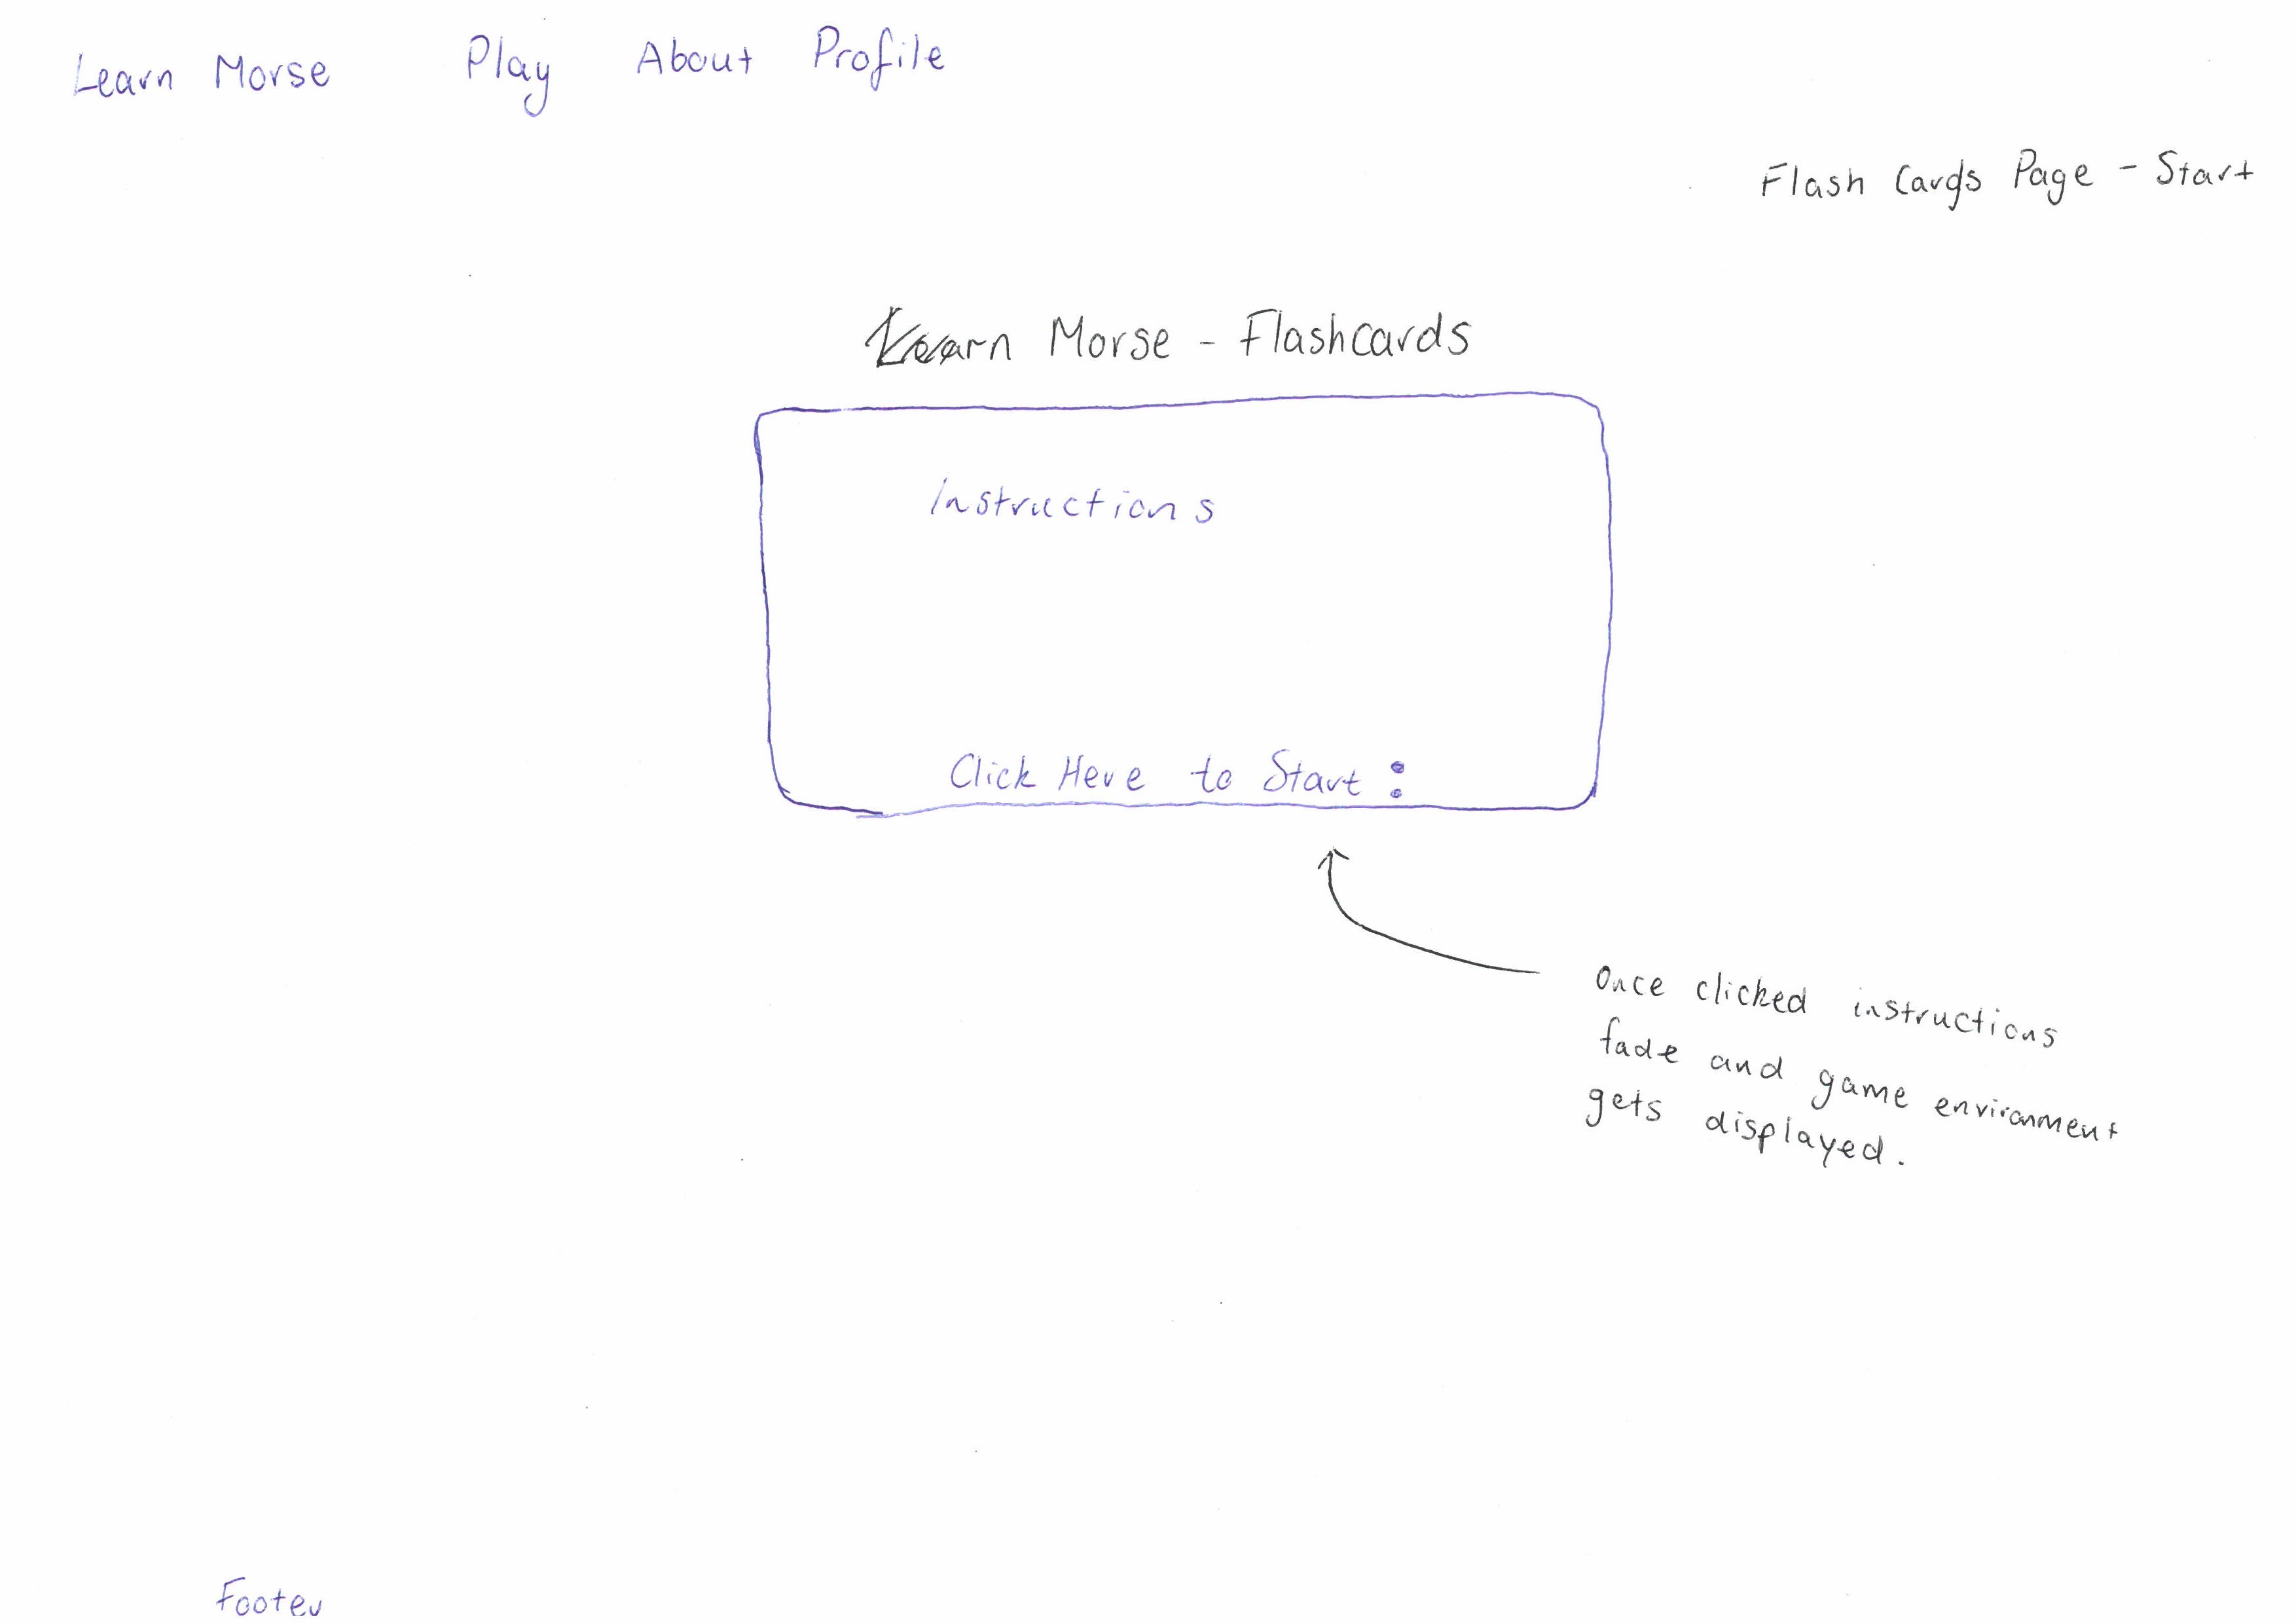 Learn Morse Play About Profile
Flash Cards Page - Start
Learn Morse - Flashcards
Instructions
Click Here to Start :
Once clicked instructions
fade and game environment
gets displayed.
Footer